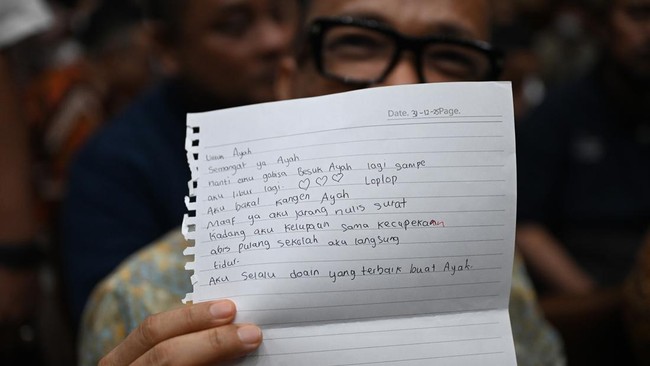 Date. 31-12-25 Page.
Ayah
Semangat ya Ayah
nanti aku gabisa Besuk Ayah lagi sampe
aku libur lagi. ♡ ♡ ♡ Loplop
Aku bakal kangen Ayah
Maaf ya aku jarang nulis surat
Kadang aku kelupaan sama kecapekaan
abis pulang sekolah aku langsung
tidur.
Aku selalu doain yang terbaik buat Ayah.